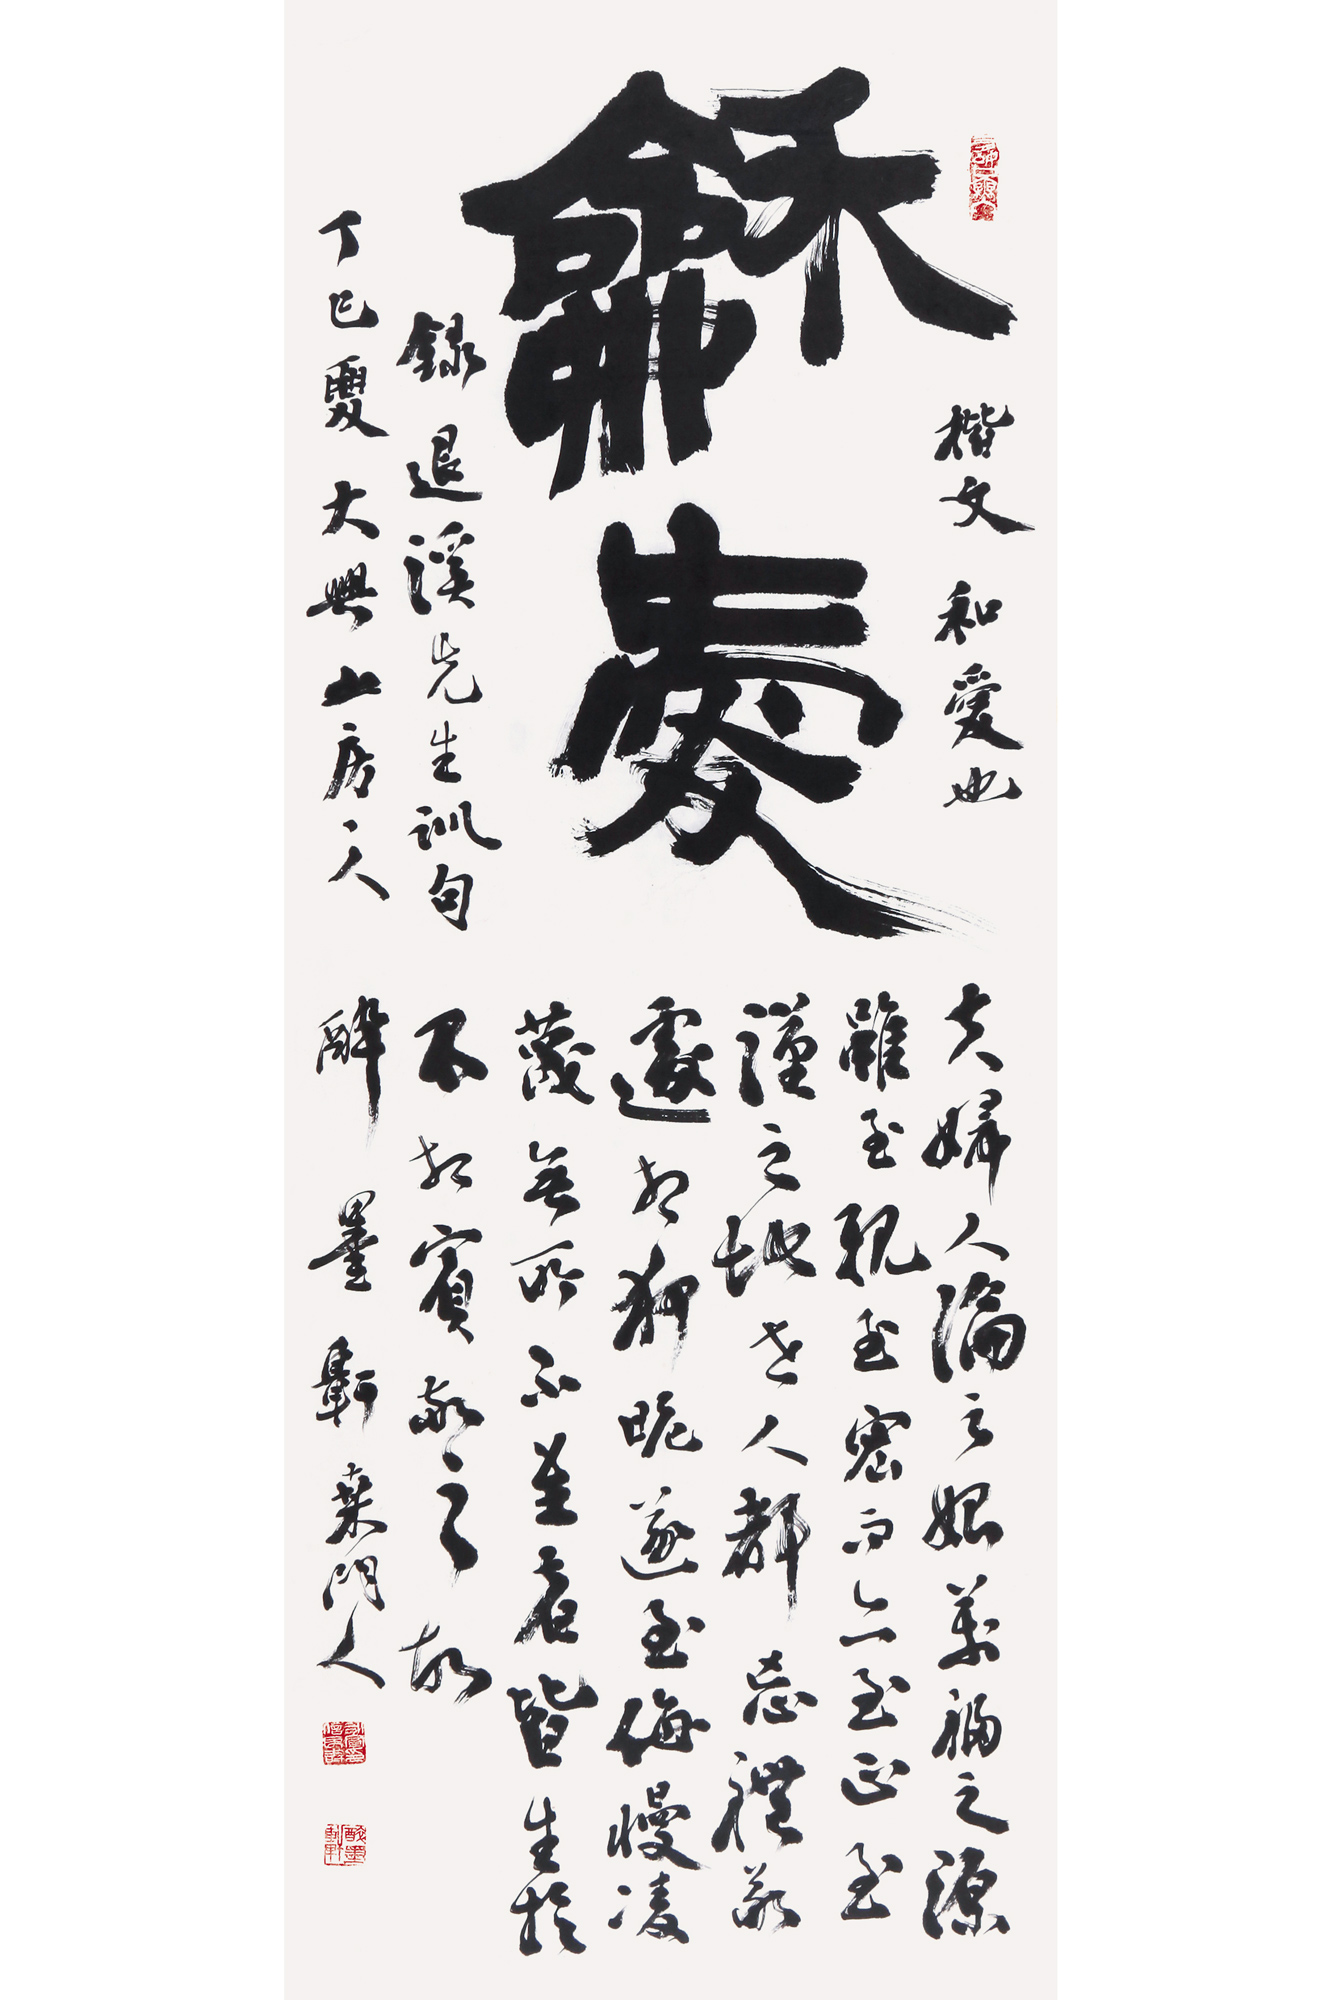 龢愛
楷文 和愛也
夫婦人倫之始萬福之源
雖至親至密而亦至正至
謹之地世人都忘禮敬
遽相狎昵遂至侮慢凌
蔑無所不至者皆生於
不相賓敬之故
錄退溪先生訓句
丁巳夏大興山房人
醉墨軒桒門人